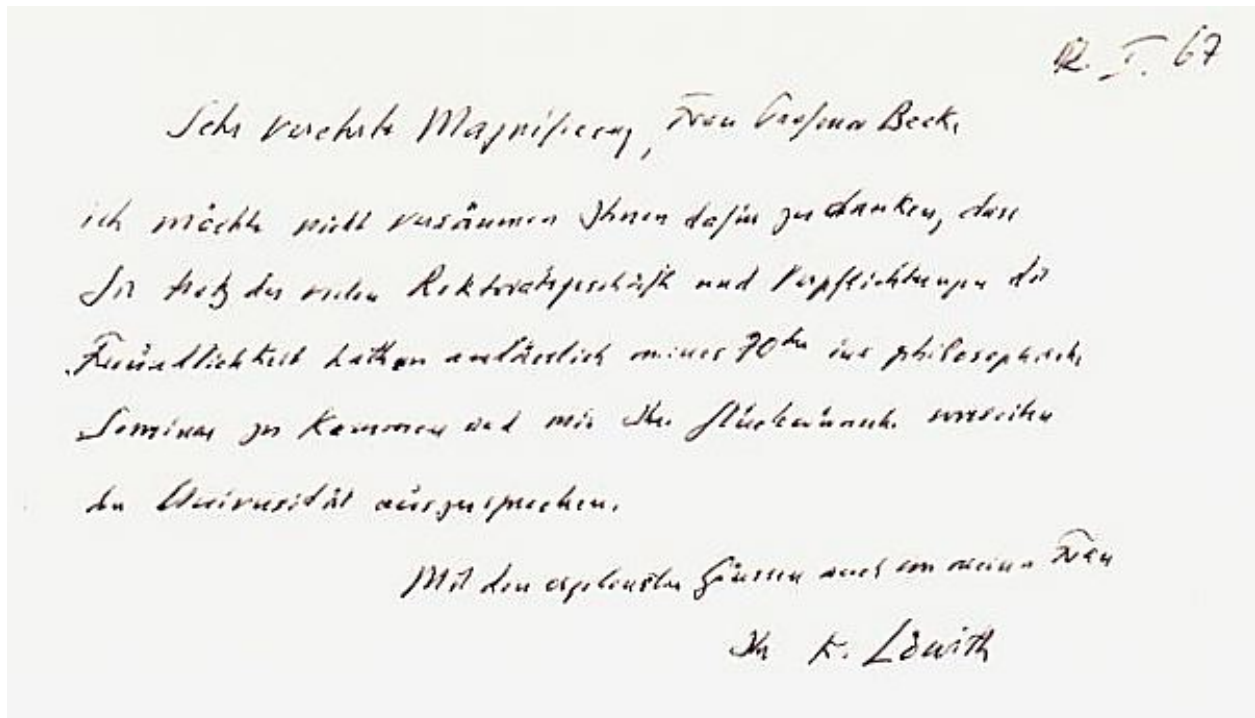 12. I. 67
Sehr verehrte Magnifizenz, Frau Professor Becke,
ich möchte nicht versäumen Ihnen dafür zu danken, dass
Sie trotz der vielen Rektoratsgeschäfte und Verpflichtungen die
Freundlichkeit hatten anlässlich meines 70ten ins philosophische
Seminar zu kommen und mir die Glückwünsche
der Universität auszusprechen.
Mit den ergebensten Grüssen auch von meiner Frau
Ihr K. Löwith